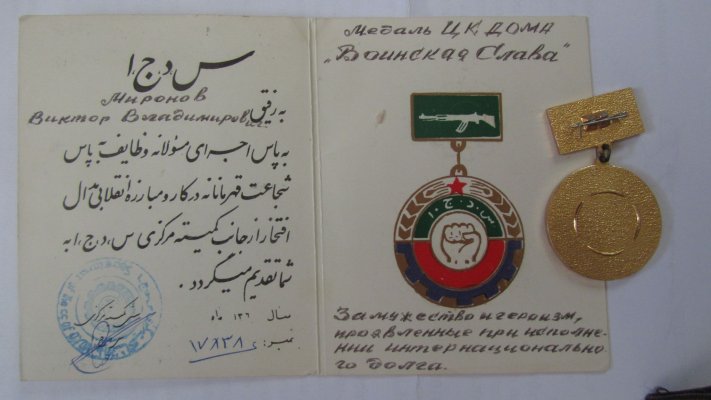 س.د.ج.ا
Миронов
به رفیق
Виктор Владимирович
به پاس اجرای مسؤلانه وظایف به پاس
شجاعت قهرمانانه در کار و مبارزه انقلابی مدال
افتخار از جانب کمیته مرکزی س.د.ج.ا به
شما تقدیم میگردد.
سال ۱۳۶ ماه
نمبر: ۱۷۸۳۸
Медаль ЦК ДОМА
„Воинская Слава"
س.د.ج.ا
За мужество и героизм,
проявленные при исполне-
нии интернационально-
го долга.